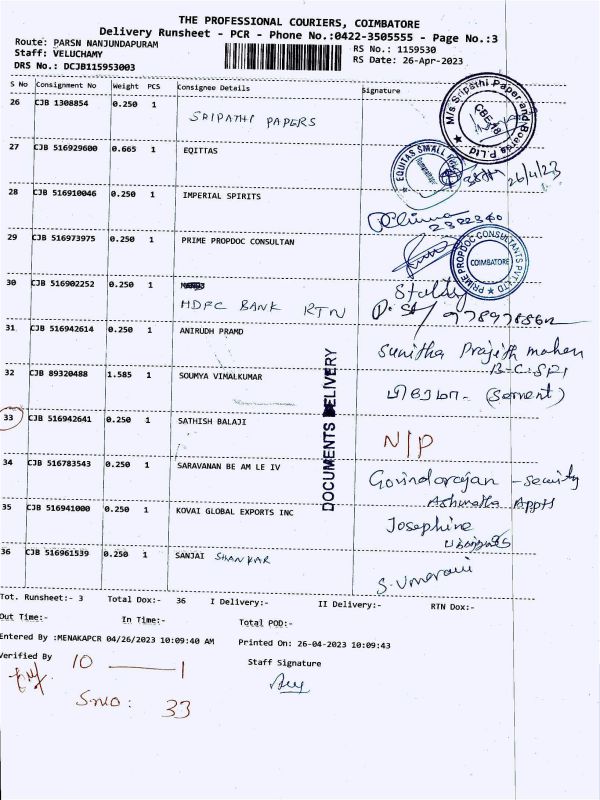 THE PROFESSIONAL COURIERS, COIMBATORE
Delivery Runsheet - PCR - Phone No.:0422-3505555 - Page No.:3
Route: PARSN NANJUNDAPURAM
RS No.: 1159530
Staff: VELUCHAMY
RS Date: 26-Apr-2023
DRS No.: DCJB115953003
S No Consignment No Weight PCS Consignee Details Signature
26 CJB 1308854 0.250 1 SRIPATHI PAPERS
M/s Sripathi Paper and Boards P.Ltd
CBE-18
27 CJB 516929600 0.665 1 EQITTAS
EQUITAS SMALL
26/4/23
28 CJB 516910046 0.250 1 IMPERIAL SPIRITS
2322340
29 CJB 516973975 0.250 1 PRIME PROPDOC CONSULTAN
PRIME PROPDOC CONSULTANTS PVT LTD
COIMBATORE
30 CJB 516902252 0.250 1
HDFC BANK RTN
31 CJB 516942614 0.250 1 ANIRUDH PRAMD
Sunitha Prajith mohan
32 CJB 89320488 1.585 1 SOUMYA VIMALKUMAR
(Servent)
DOCUMENTS DELIVERY
33 CJB 516942641 0.250 1 SATHISH BALAJI N/P
34 CJB 516783543 0.250 1 SARAVANAN BE AM LE IV
Govindarajan - Security
Appts
35 CJB 516941000 0.250 1 KOVAI GLOBAL EXPORTS INC
Josephine
36 CJB 516961539 0.250 1 SANJAI SHANKAR
Tot. Runsheet:- 3 Total Dox:- 36 I Delivery:- II Delivery:- RTN Dox:-
Out Time:- In Time:- Total POD:-
Entered By :MENAKAPCR 04/26/2023 10:09:40 AM Printed On: 26-04-2023 10:09:43
Verified By
Staff Signature
10 — 1
S.NO: 33